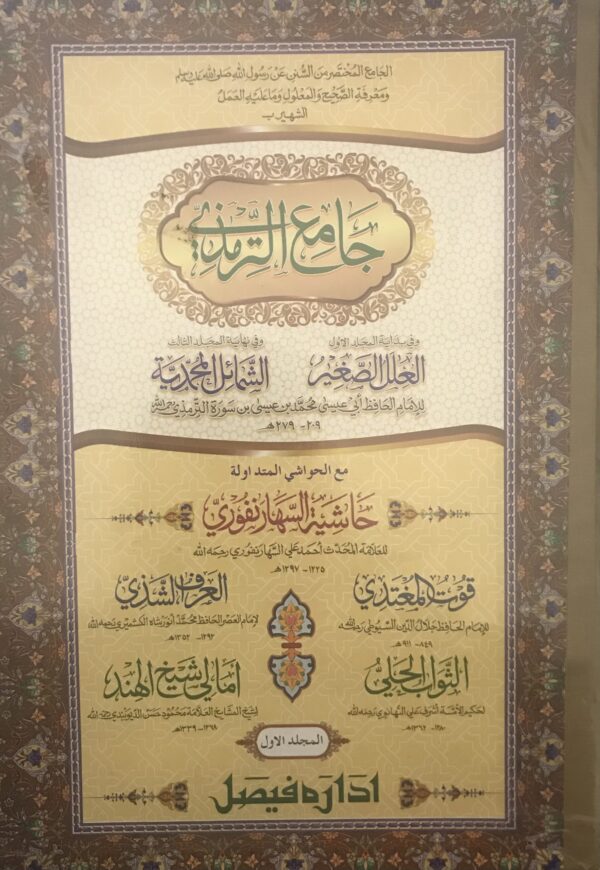 الجامع المختصر من السنن عن رسول الله صلى الله عليه وسلم
ومعرفة الصحيح والمعلول وما عليه العمل
الشهير ب
جامع الترمذي
وفي بداية المجلد الاول
العلل الصغير
وفي نهاية المجلد الثالث
الشمائل المحمدية
للإمام الحافظ أبي عيسى محمد بن عيسى بن سورة الترمذي رحمه الله
٢٠٩ - ٢٧٩ هـ
مع الحواشي المتداولة
حاشية السهارنفوري
للعلامة المحدث أحمد علي السهارنفوري رحمه الله
١٢٢٥ - ١٢٩٧ هـ
قوت المغتذي
للإمام الحافظ جلال الدين السيوطي رحمه الله
٨٤٩ - ٩١١ هـ
العرف الشذي
لإمام العصر الحافظ محمد أنور شاه الكشميري رحمه الله
١٢٩٢ - ١٣٥٢ هـ
الثواب الحلي
لحكيم الأمة أشرف علي التهانوي رحمه الله
١٢٨٠ - ١٣٦٢ هـ
أمالي شيخ الهند
لشيخ المشايخ العلامة محمود حسن الديوبندي رحمه الله
١٢٦٨ - ١٣٣٩ هـ
المجلد الاول
اداره فيصل